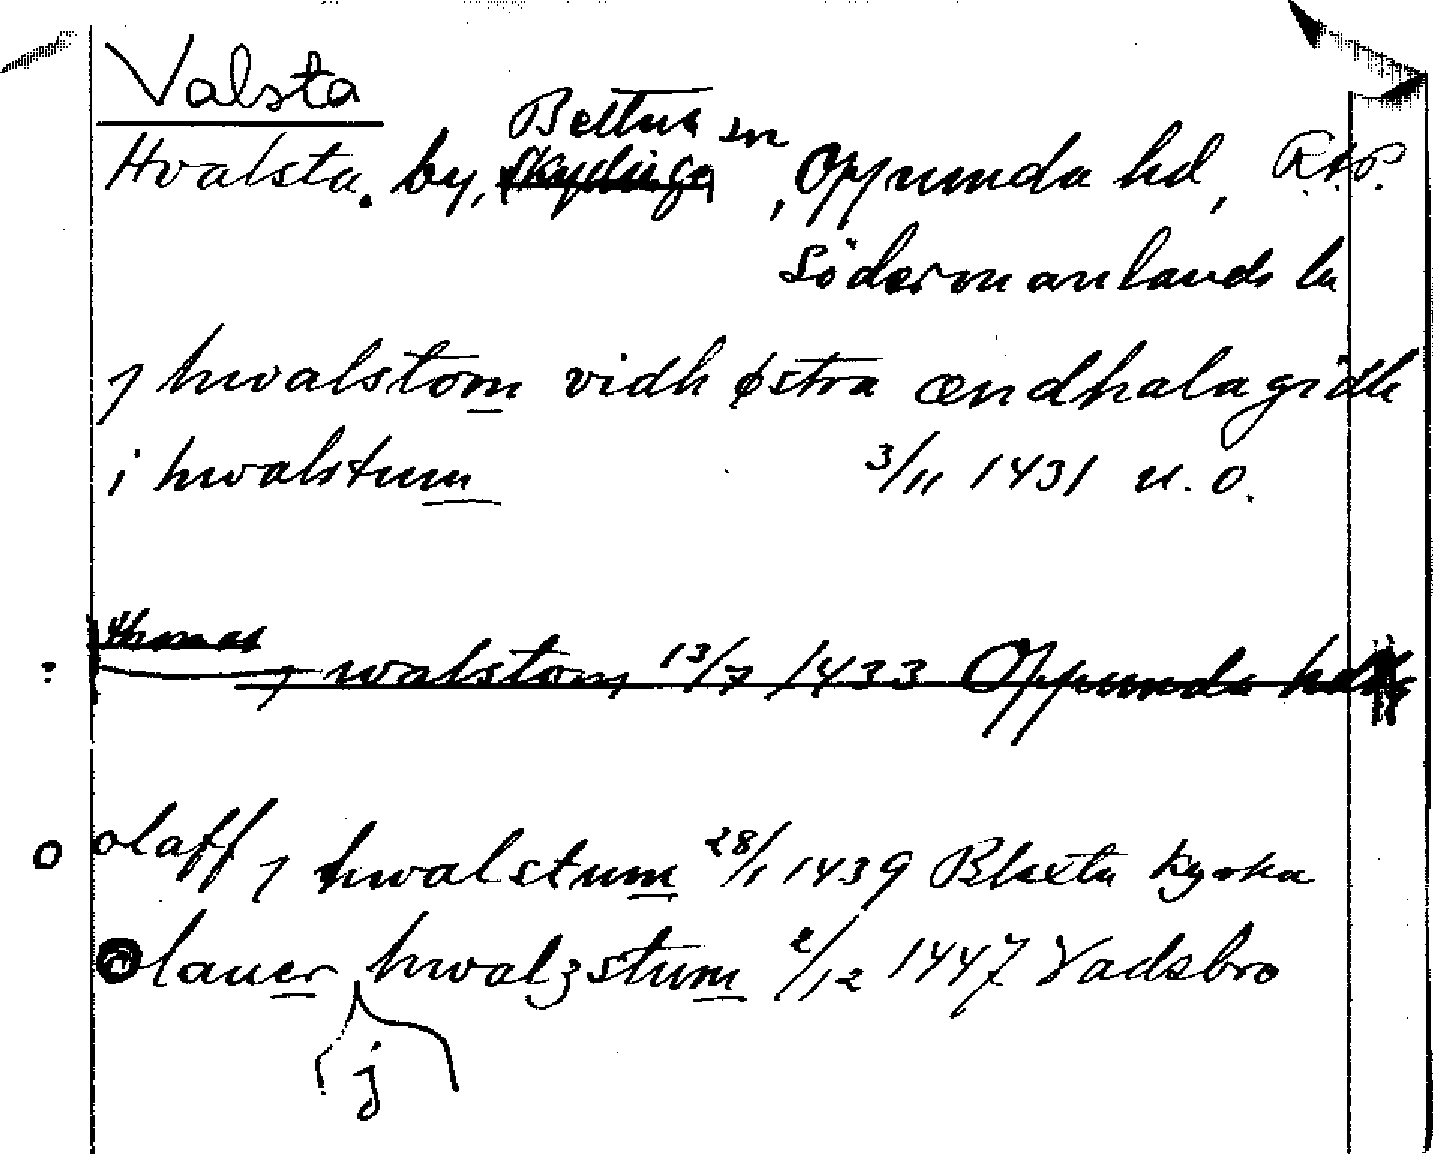 Valsta
Bettna sn
Hvalsta. by, Skydinge, Oppunda hd, RAP.
Södermanlands ln
j hwalstom vidh østra ændhalagidh
i hwalstum 3/11 1431 u. o.
thomas
j walstom 13/7 1433 Oppunda hd
olaff j hwalstum 28/1 1439 Blaxta kyrka
Olauer hwalzstum 2/12 1447 Vadsbro
j